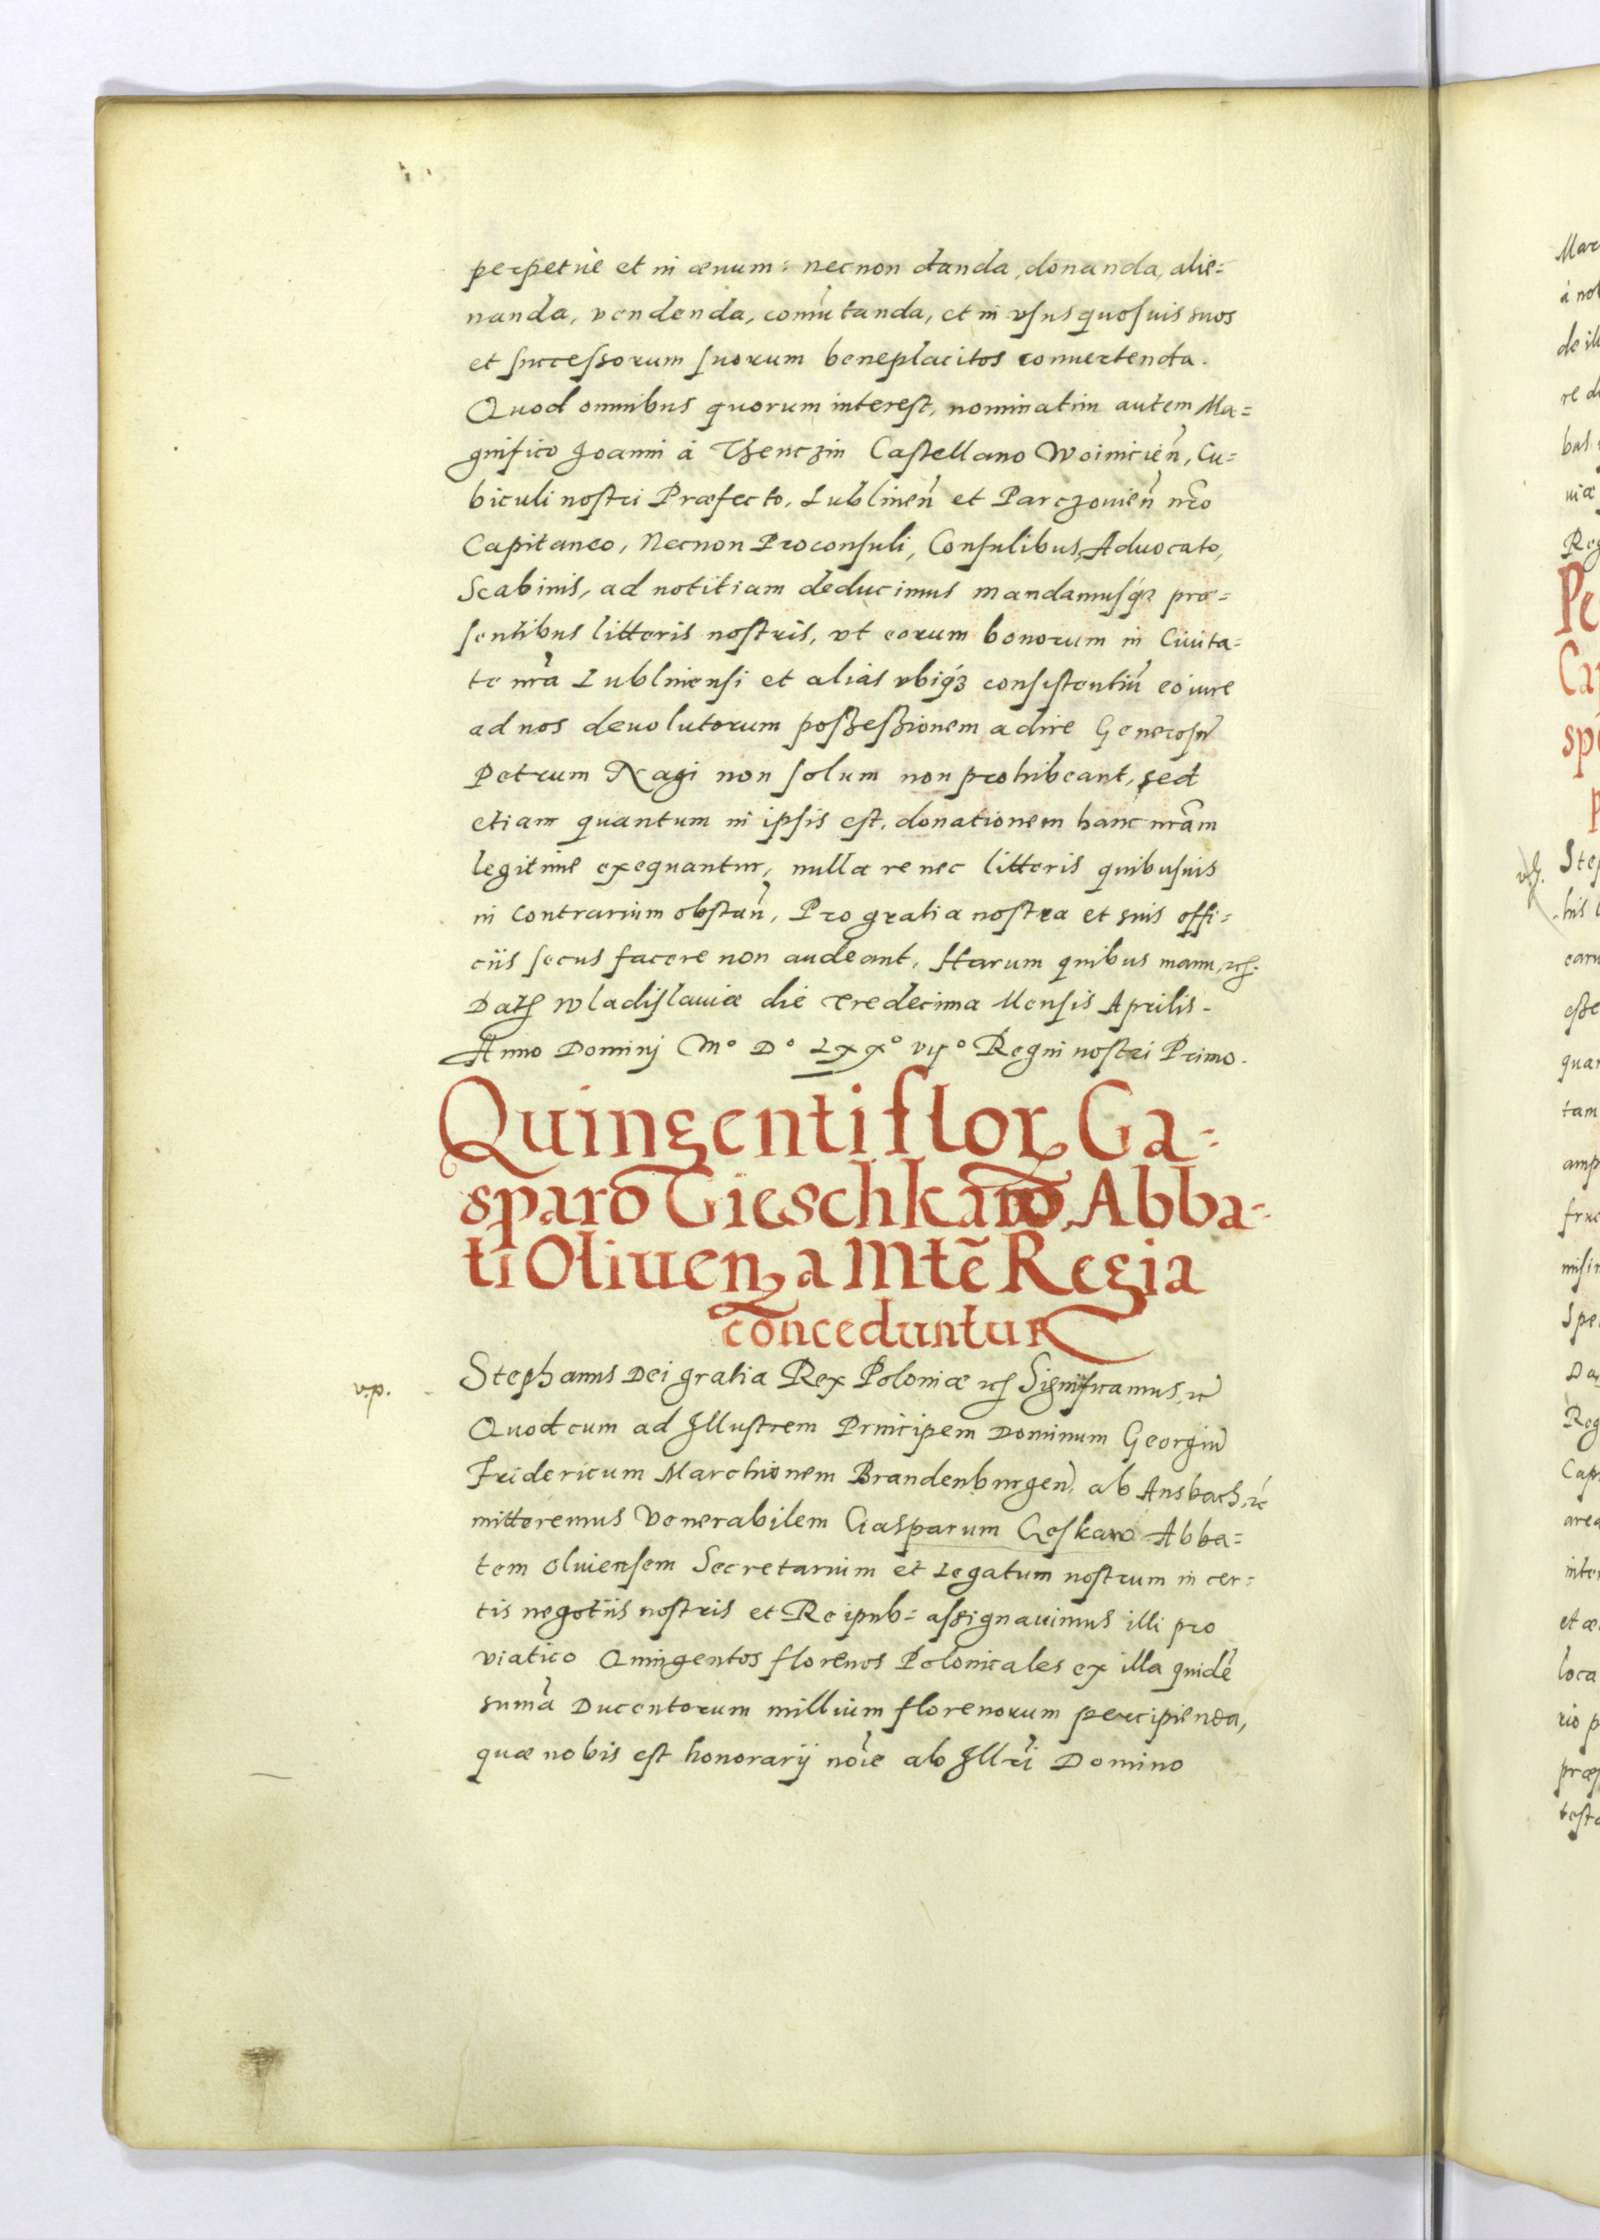 perpetuè et in æuum: necnon danda, donanda, alie=
nanda, vendenda, com̃utanda, et in vsus quosuis suos
et successorum suorum beneplacitos conuertenda.
Quod omnibus quorum interest, nominatim autem Ma=
gnifico Joanni à Thenczin Castellano Woinicień, Cu=
biculi nostri Præfecto, Lublineñ et Parczouieñ nr̃o
Capitaneo, Necnon Proconsuli, Consulibus, Aduocato,
Scabinis, ad notitiam deducimus mandamusq́ꝫ præ=
sentibus litteris nostris, vt eorum bonorum in Ciuita=
te nr̃a Lublinensi et alias vbiq́ꝫ consistentiũ eo iure
ad nos deuolutorum possessionem adire Generosũ
Petrum Nagi non solum non prohibeant, sed
etiam quantum in ipsis est, donationem hanc nr̃am
legitime exequantur, nulla re nec litteris quibusuis
in contrarium obstañ, Pro gratia nostra et suis offi=
ciis secus facere non audeant. Harum quibus manu, ꝛc̃.
Datꝭ Wladislauiæ die tredecima Mensis Aprilis.
Anno Dominj Mº Dº LXXº vijº Regni nostri Primo.
Quingenti florꝭ Ga=
sparo Gieschkaw Abba=
ti Oliueñ a Mtẽ Regia
conceduntur
v.p.
Stephanus Dei gratia Rex Poloniæ ꝛc̃ Significamus, ꝛc̃
Quod cum ad Illustrem Principem Dominum Georgiũ
Fridericum Marchionem Brandenburgeñ. ab Ansbach, ꝛc̃
mitteremus Venerabilem Gasparum Geskaw Abba=
tem Oliuensem Secretarium et Legatum nostrum in cer=
tis negotiis nostris et Reipub= assignauimus illi pro
viatico Quingentos florenos Polonicales ex illa quidẽ
sum̃a Ducentorum millium florenorum percipienda,
quæ nobis est honorarij noĩe ab Illr̃i Domino